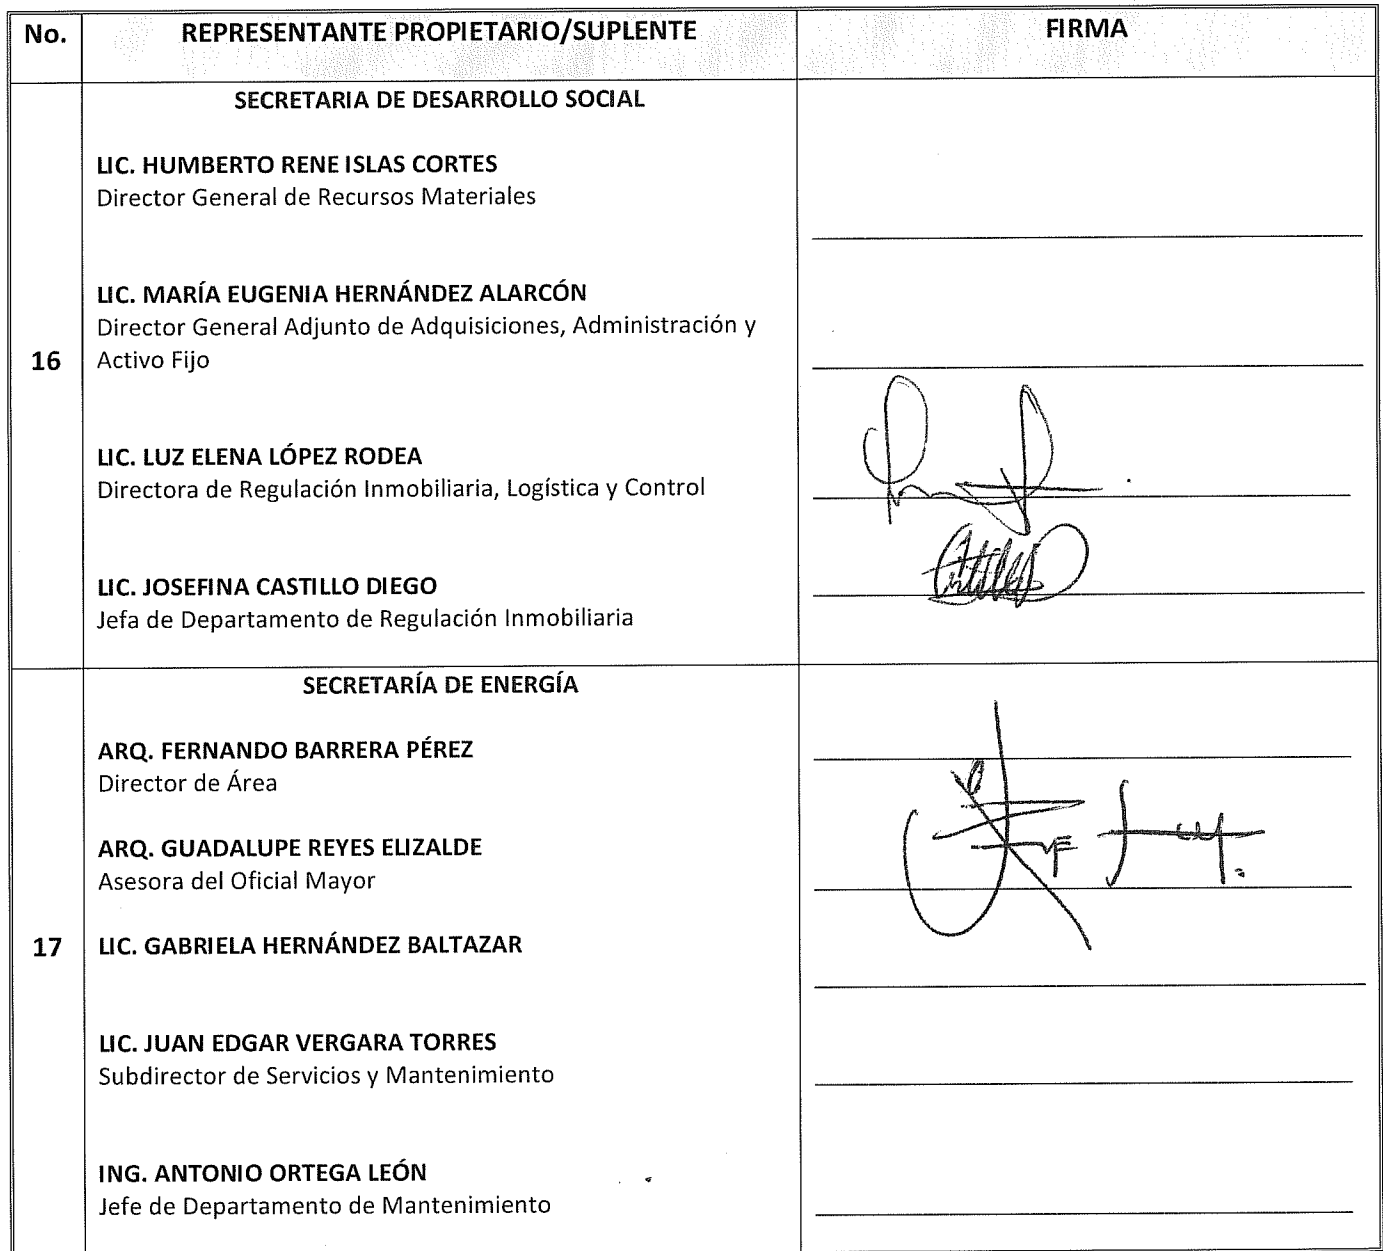 No. REPRESENTANTE PROPIETARIO/SUPLENTE FIRMA
SECRETARIA DE DESARROLLO SOCIAL
LIC. HUMBERTO RENE ISLAS CORTES
Director General de Recursos Materiales
LIC. MARÍA EUGENIA HERNÁNDEZ ALARCÓN
Director General Adjunto de Adquisiciones, Administración y
16 Activo Fijo
LIC. LUZ ELENA LÓPEZ RODEA
Directora de Regulación Inmobiliaria, Logística y Control
LIC. JOSEFINA CASTILLO DIEGO
Jefa de Departamento de Regulación Inmobiliaria
SECRETARÍA DE ENERGÍA
ARQ. FERNANDO BARRERA PÉREZ
Director de Área
ARQ. GUADALUPE REYES ELIZALDE
Asesora del Oficial Mayor
17 LIC. GABRIELA HERNÁNDEZ BALTAZAR
LIC. JUAN EDGAR VERGARA TORRES
Subdirector de Servicios y Mantenimiento
ING. ANTONIO ORTEGA LEÓN
Jefe de Departamento de Mantenimiento